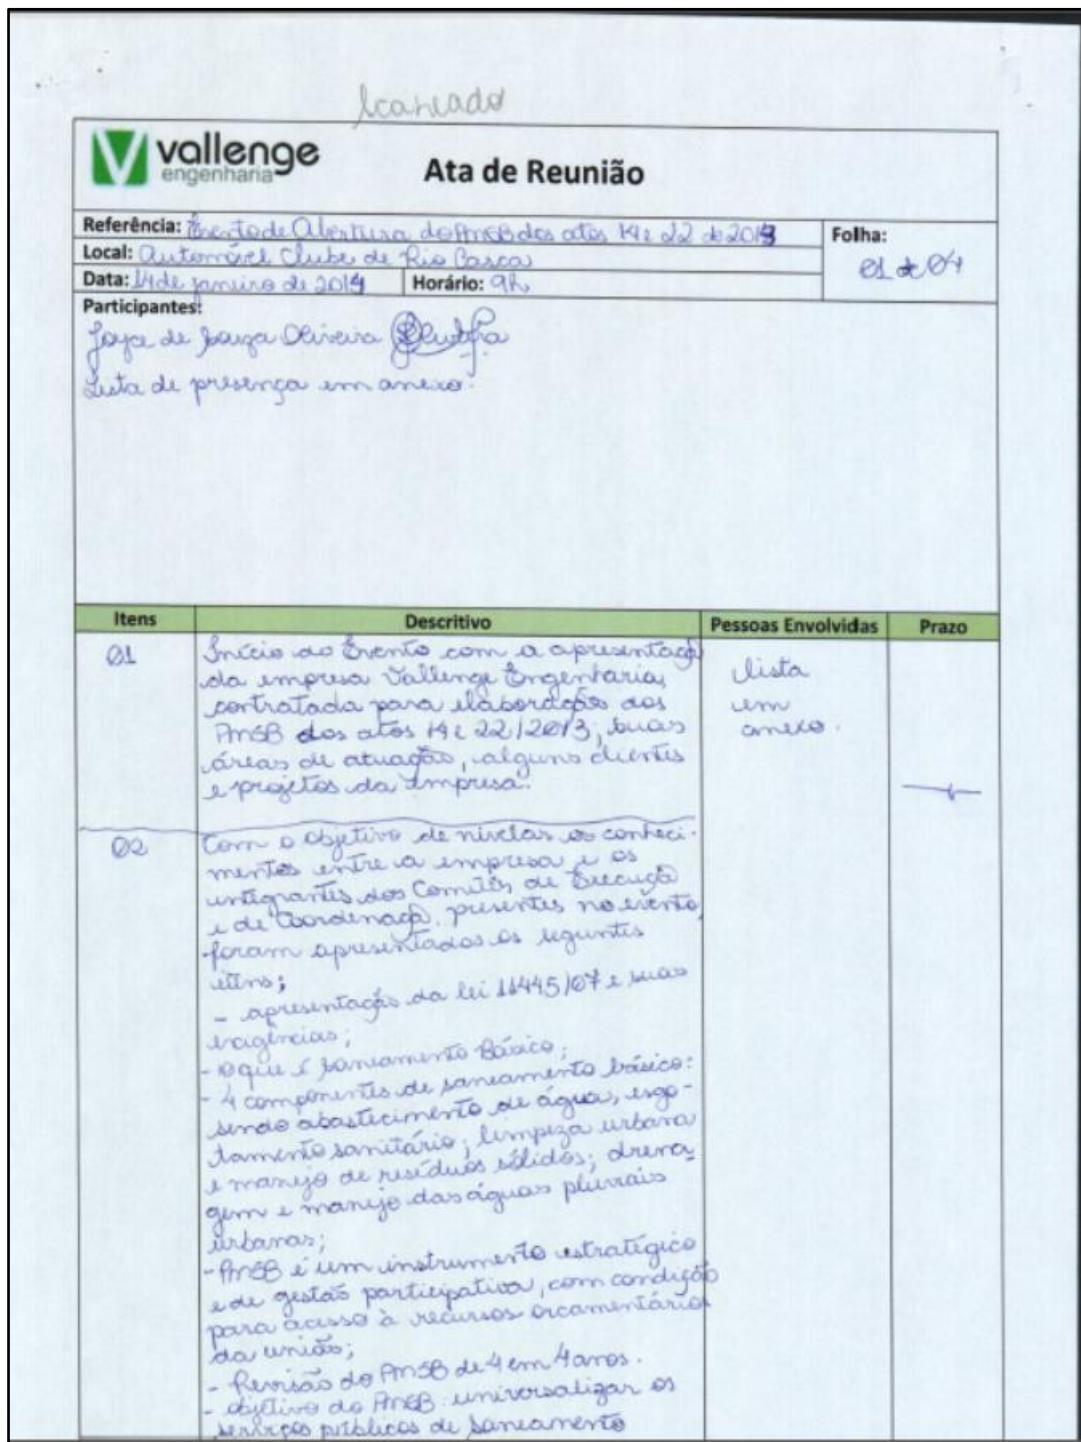 Scaneado
vallenge
engenharia
Ata de Reunião
Referência: Evento de Abertura do PMSB dos atos 14 e 22 de 2013
Folha:
01 de 04
Local: Automóvel Clube de Rio Casca
Data: 14 de janeiro de 2014 Horário: 9h
Participantes:
Joyce de Souza Oliveira
Lista de presença em anexo.
Itens Descritivo Pessoas Envolvidas Prazo
01
Início do Evento com a apresentaçã
da empresa Vallenge Engenharia,
contratada para elaboração dos
PMSB dos atos 14 e 22/2013; suas
áreas de atuação, alguns clientes
e projetos da empresa.
lista
em
anexo.
02
Com o objetivo de nivelar os conheci-
mentos entre a empresa e os
integrantes dos Comitês de Execuçã
e de Coordenaçã, presentes no evento,
foram apresentados os seguintes
itens;
- apresentação da lei 11445/07 e suas
exigências;
- O que é saneamento Básico;
- 4 componentes de saneamento básico:
sendo abastecimento de água, esgo-
tamento sanitário; limpeza urbana
e manejo de resíduos sólidos; drena-
gem e manejo das águas pluviais
urbanas;
- PMSB é um instrumento estratégico
e de gestão participativa, com condição
para acesso à recursos orcamentários
da união;
- Revisão do PMSB de 4 em 4 anos.
- objetivo do PMSB: universalizar os
serviços públicos de saneamento